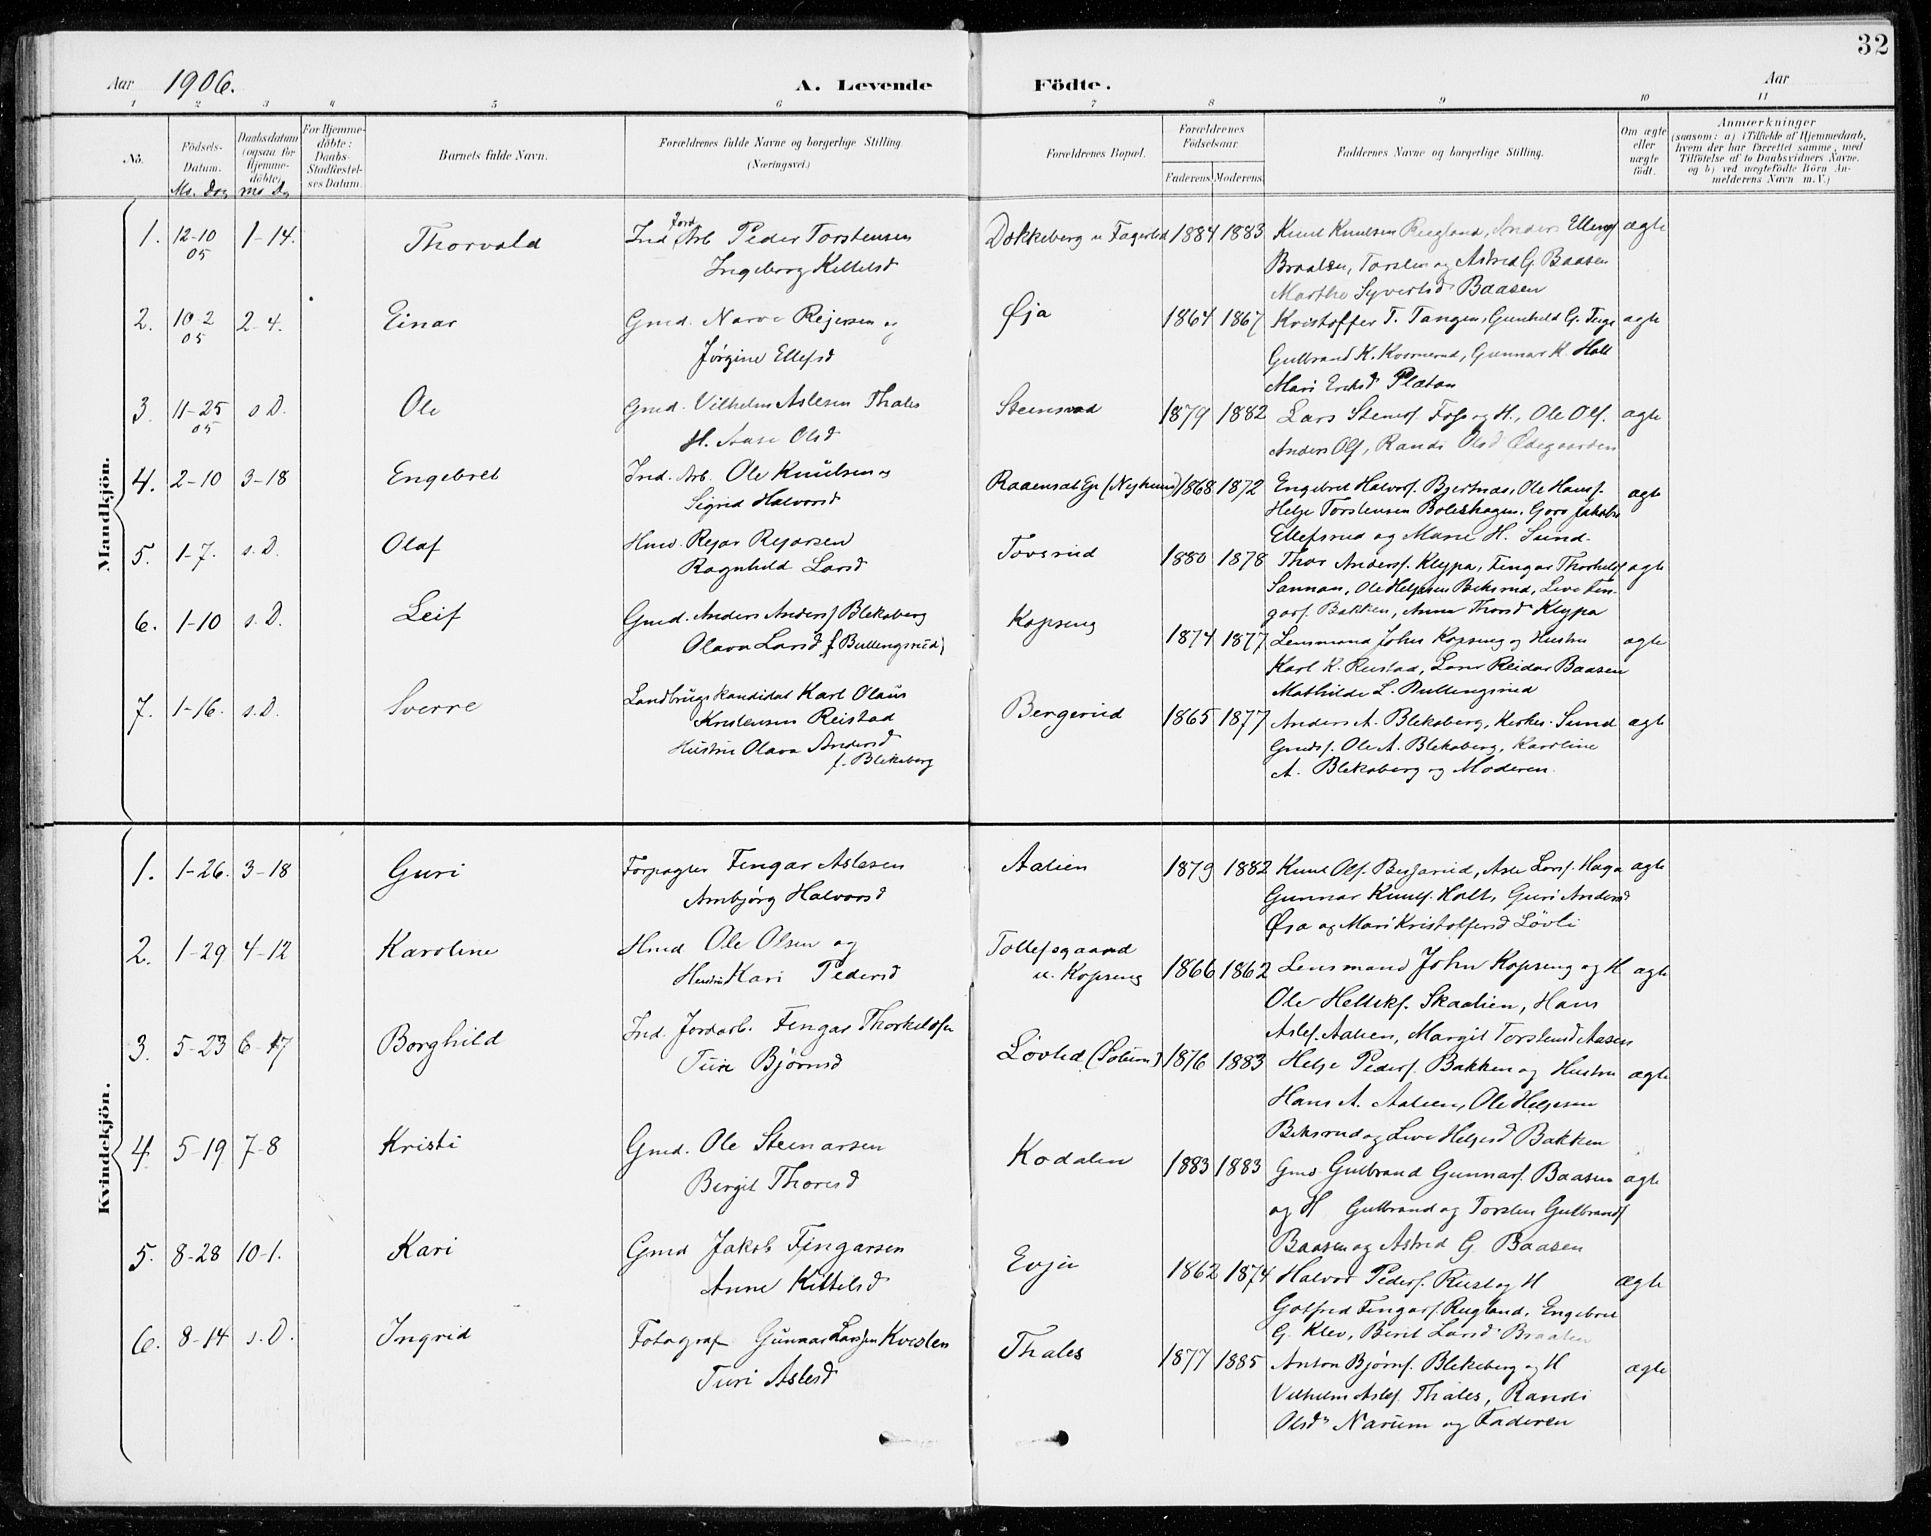 32
Aar 1906. A. Levende Födte. Aar
1 2 3 4 5 6 7 8 9 10 11
No. Födsels-Datum. Daabsdatum (ogsaa for Hjemmedöbte). For Hjemmedöbte: Daabs-Stadfæstelses Datum. Barnets fulde Navn. Forældrenes fulde Navne og borgerlige Stilling (Næringsvei.) Forældrenes Bopæl. Forældrenes Födselsaar. Faderens. Moderens. Faddernes Navne og borgerlige Stilling. Om ægte eller uægte födt. Anmærkninger (saasom: a) i Tilfælde af Hjemmedaab, hvem der har forrettet samme, med Tilföielse af to Daabsvidners Navne, og b) ved uægtefödte Börn Anmelderens Navn m. V.)
Mo. Dag Mo Dg
Mandkjön.
1. 12-10 05 1-14. Thorvald Ind. Jord Arb Peder Torstensen Dokkeberg u Fagerlid 1884 1883 Knud Knudsen Rugland, Anders Ellings ægte
Ingeborg Kittelsd Braaten, Torsten og Astrid G. Baasen
Marthe Syvertsd Baasen
2. 10-2 05 2-4. Einar Gmd. Narve Rejersen og Øja 1864 1867 Kristoffer T. Tangen, Gunhild G. ægte
Jørgine Ellefsd Gulbrand K. Kvornerud, Gunnar K. Holt
Mari Eriksd Pladsen
3. 11-25 05 s. D. Ole Gmd. Vilhelm Aslesen Thales 1879 1882 Lars Stenersf. Foss og H., Ole Olf. ægte
H. Aase Olsd Anders Olf, Randi Olsd Ødegaarden
4. 2-10 3-18 Engebret Ind. Arb. Ole Knudsen og 1868 1872 Engebret Halvorsf. Bjertnæs, Ole Hansf. ægte
Sigrid Halvorsd Helge Torstensen Boleshagen, Goro Jakobs
Ellefsrud og Marie H. Sund.
5. 1-7. s. D. Olaf Hmd. Rejar Rejarsen Tovsrud 1880 1878 Thor Andersf. Klypa, Fingar Thorkelsf ægte
Ragnhild Larsd Sannan, Ole Helgesen Beksrud, Live Fin-
garf. Bakken, Anne Thorsd Klypa
6. 1-10 s. D. Leif Gmd. Anders Andersf Blekeberg Kopseng 1874 1877 Lensmand John Kopseng og Hustru ægte
Olava Larsd f. Bullengsrud Karl K. Reistad, Lars Reidar Baasen
Mathilde L. Bullengsrud
7. 1-16. s. D. Sverre Landbrugskandidat Karl Olaus Bergerud 1865 1877 Anders A. Blekeberg, Kirkes. Sund ægte
Kristensen Reistad Gmdsf. Ole A. Blekeberg, Karoline
Hustru Olava Andersd A. Blekeberg og Moderen.
f. Blekeberg
Kvindekjön.
1. 1-26. 3-18 Guri Forpagter Fingar Aslesen Aalien 1879 1882 Knud Olf. Bergerud, Asle Larsf. Haga ægte
Ambjørg Halvorsd Gunnar Knudf. Holt, Guri Andersd
Øia og Mari Kristoffersd Løvli
2. 1-29 4-12 Karoline Hmd Ole Olsen og Tollefsgaard 1866 1862 Lensmand John Kopseng og H ægte
Hustru Kari Pedersd u. Kopseng Ole Hellikf. Skaalien, Hans
Aslef. Aalien, Margit Torstensd Aasen
3. 5-23 6-17 Borghild Ind. Jordarb. Fingar Thorkelsen Løvlid 1876 1883 Helge Pedersf. Bakken og Hustru ægte
Turi Bjørnsd Hans A. Aalien, Ole Helgesen
Beksrud og Live Helgesd Bakken
4. 5-19 7-8 Kristi Gmd. Ole Steinarsen Kodalen 1883 1883 Gmd Gulbrand Gunnarf. Baasen ægte
Bergit Thoresd og H Gulbrand og Torsten Gulbrandsf
Baasen og Astrid G. Baasen
5. 8-28 10-1. Kari Gmd Jakob Fingarsen Evju 1862 1874 Halvor Pedersf. Rust og H ægte
Anne Kittelsd Gotfred Fingarsf. Rugland, Engebret
G. Klev, Berit Larsd Braaten
6. 8-14 s. D. Ingrid Fotograf Gunnar Larssen Kvisten Thales 1877 1885 Anton Bjørnf. Blekeberg og H ægte
Turi Aslesd Vilhelm Aslef. Thales, Randi
Olsd Narum og Faderen